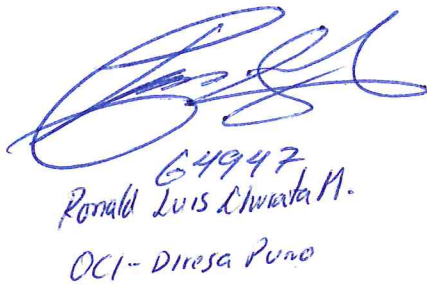 64947
Ronald Luis Churata M.
OCI - Diresa Puno